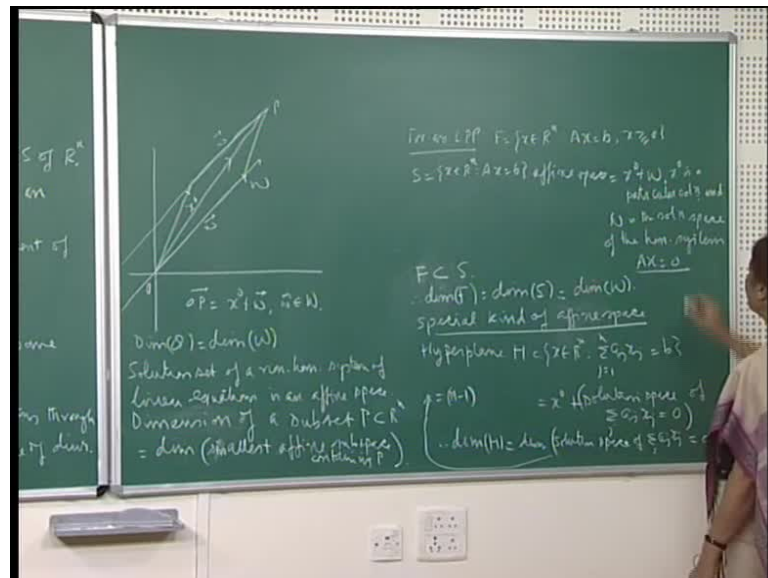 S of Rⁿ
an
ent of
ome
through
of dim.
P
W
x⁰
w⃗
O
OP⃗ = x⁰ + w⃗, w⃗ ∈ W.
Dim(S) = dim(W)
Solution set of a non-hom. system of
linear equations is an affine space.
Dimension of a subset P ⊂ Rⁿ
= dim (smallest affine subspace
containing P).
For an LPP F = {x ∈ Rⁿ Ax = b, x ≥ 0}
S = {x ∈ Rⁿ: Ax = b} affine space = x⁰ + W, x⁰ is a
particular solⁿ and
W = the solⁿ space
of the hom. system
AX = 0
F ⊂ S.
∴ dim(F) = dim(S) = dim(W).
special kind of affine space
Hyperplane H = {x ∈ Rⁿ: Σ_{j=1}^{n} a_j x_j = b}
= x⁰ + (Solution space of
Σ a_j x_j = 0)
= (n-1)
∴ dim(H) = dim (solution space of Σ a_j x_j = 0